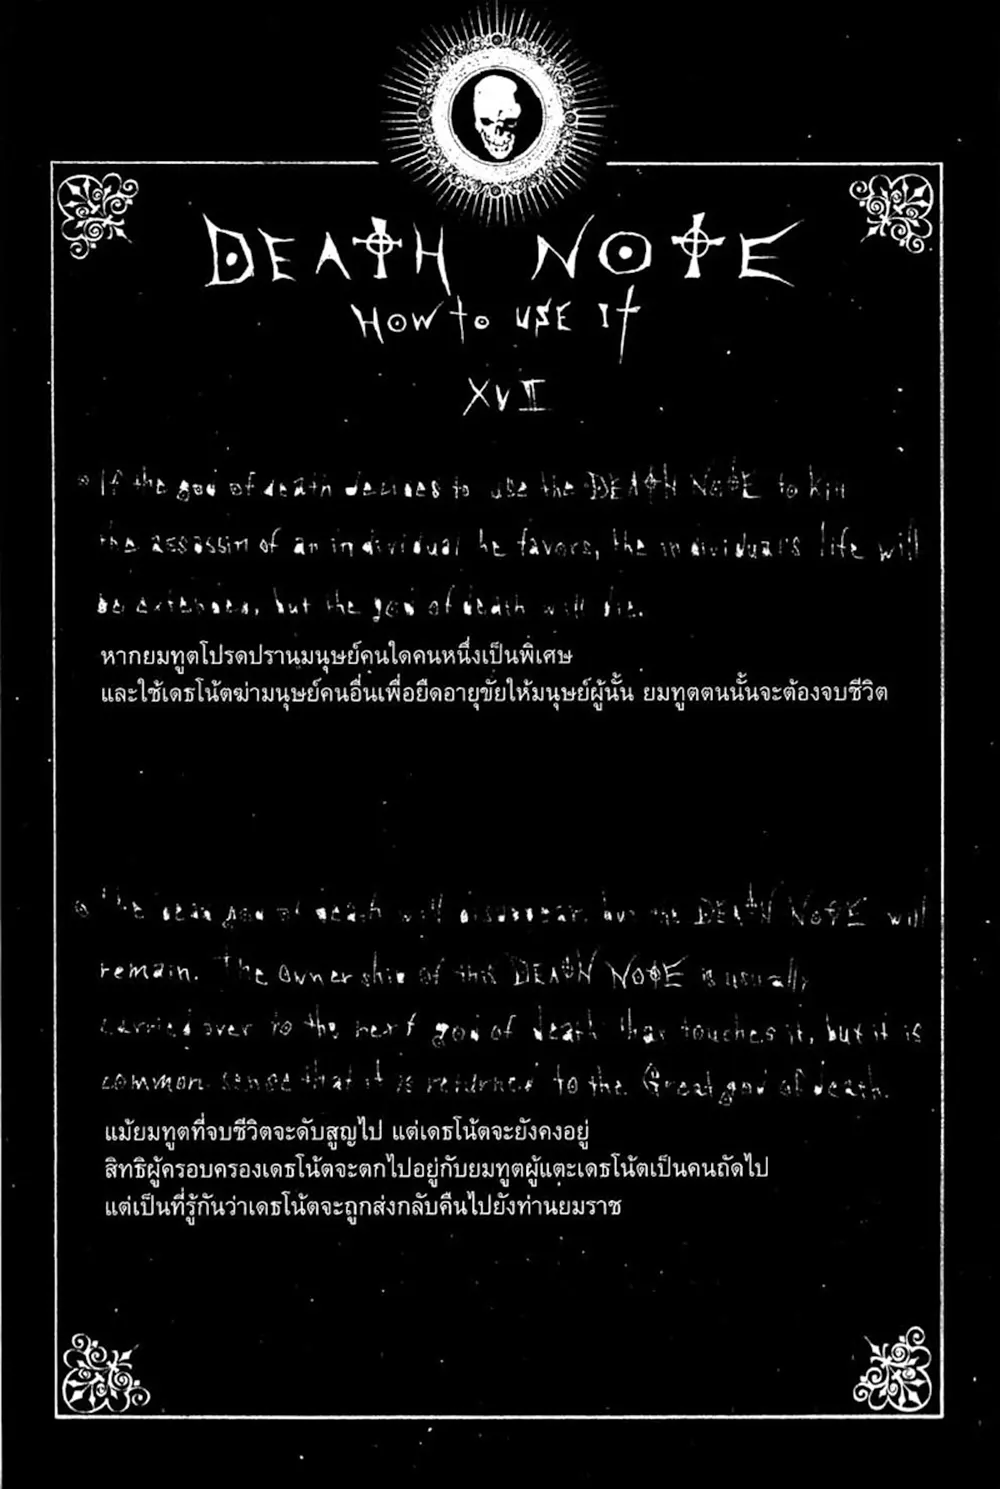 DEATH NOTE
HOW to USE It
XVII
If the god of death decides to use the DEATH NOTE to kill
the assassin of an individual he favors, the individual's life will
be extended, but the god of death will die.
หากยมทูตโปรดปรานมนุษย์คนใดคนหนึ่งเป็นพิเศษ
และใช้เดธโน้ตฆ่ามนุษย์คนอื่นเพื่อยืดอายุขัยให้มนุษย์ผู้นั้น ยมทูตตนนั้นจะต้องจบชีวิต
The dead god of death will disappear, but the DEATH NOTE will
remain. The ownership of this DEATH NOTE is usually
carried over to the next god of death that touches it, but it is
common sense that it is returned to the Great god of death.
แม้ยมทูตที่จบชีวิตจะดับสูญไป แต่เดธโน้ตจะยังคงอยู่
สิทธิผู้ครอบครองเดธโน้ตจะตกไปอยู่กับยมทูตผู้แตะเดธโน้ตเป็นคนถัดไป
แต่เป็นที่รู้กันว่าเดธโน้ตจะถูกส่งกลับคืนไปยังท่านยมราช